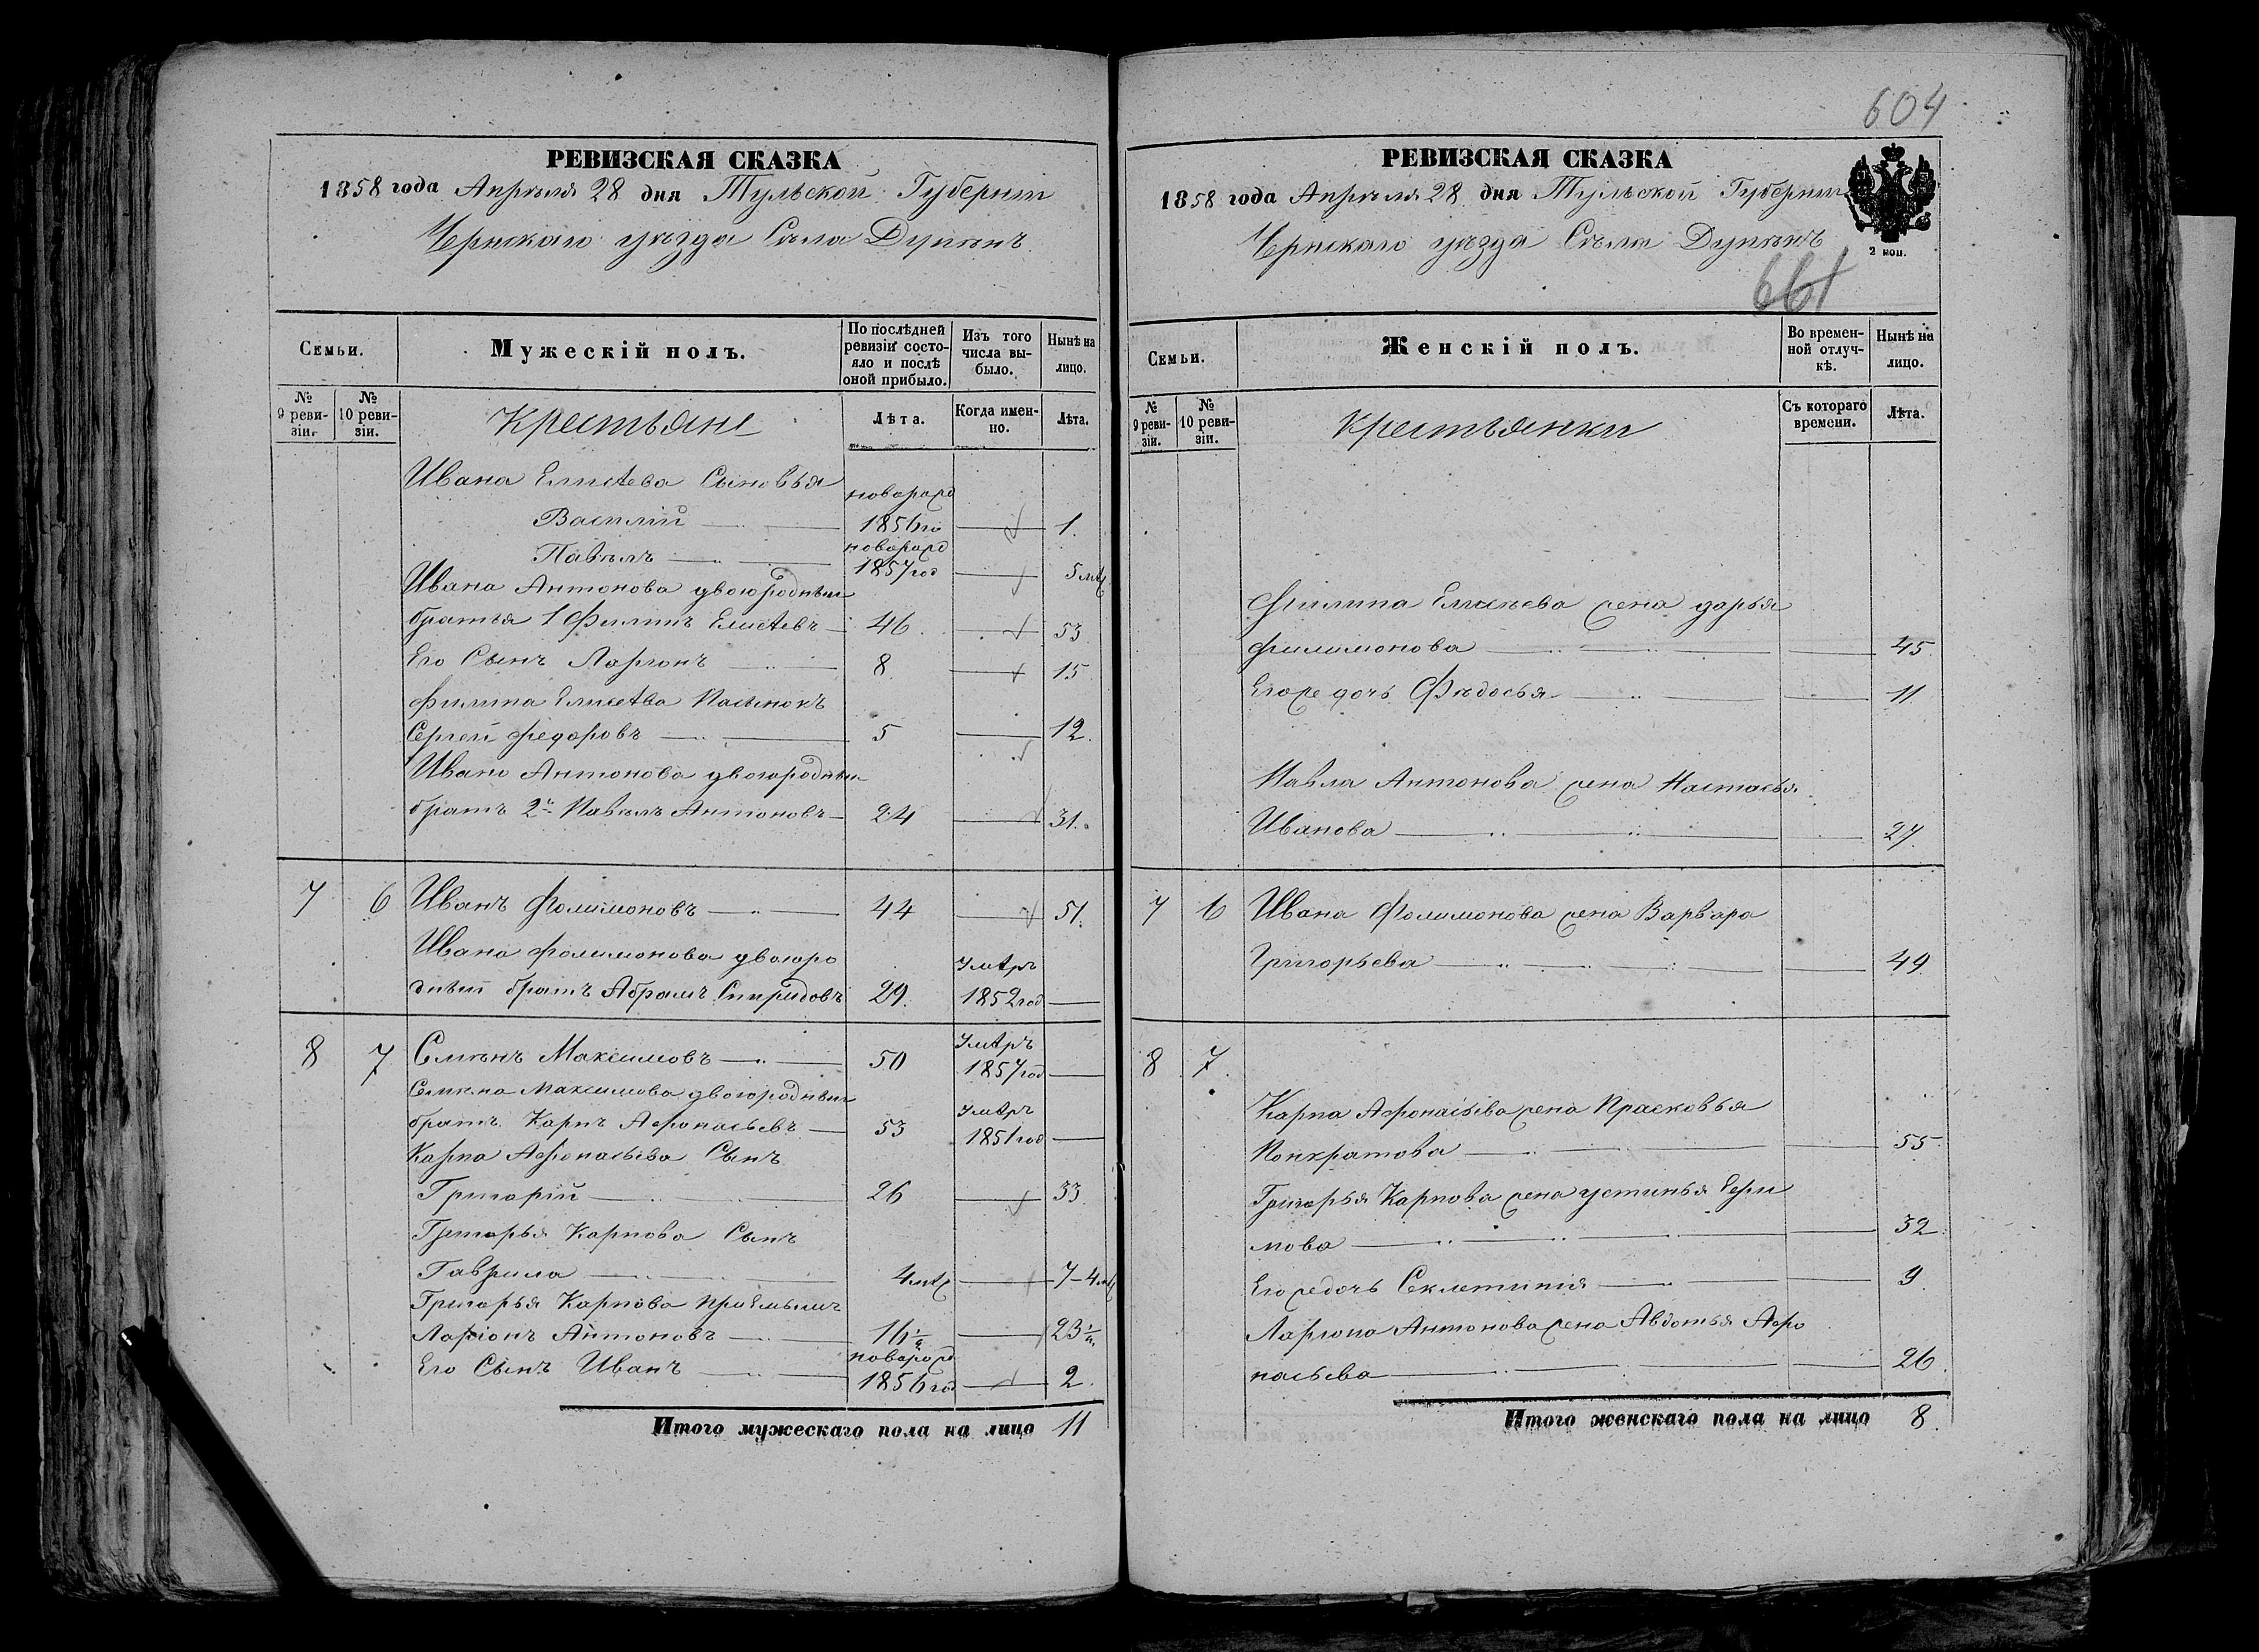 РЕВИЗСКАЯ СКАЗКА
1858 года Апрѣля 28 дня Тульской Губерніи
Чернскаго уѣзда Сѣла Дупѣнъ
Семьи.
Мужескій полъ.
По послѣдней ревизіи состояло и послѣ оной прибыло.
Изъ того числа выбыло.
Нынѣ на лицо.
№ 9 ревизіи.
№ 10 ревизіи.
Крестьяне
Лѣта.
Когда именно.
Лѣта.
Ивана Елисѣева Сыновья
Василій новорожд 1856го 1.
Павѣлъ новорожд 1857год 5 мѣ
Ивана Антонова двоюродныи
братья 1 Филипъ Елисѣевъ 46. 53
Его Сынъ Ларионъ 8. 15
Филипа Елисѣва Пасынокъ
Сергей Федоровъ 5 12.
Ивана Антонова двоюродныи
братъ 2й Павѣлъ Антоновъ 24 31.
7 6 Иванъ Фолимоновъ 44 51.
Ивана Фолимонова двоюро
дный братъ Абрамъ Спиридовъ 29. Умѣръ 1852год
8 7 Семѣнъ Максимовъ 50 Умѣръ 1857год
Семѣна Максимова двоюродныи
братъ Карпъ Афонасьевъ 53 Умѣръ 1851год
Карпа Афонасьева Сынъ
Григорій 26 33
Григорья Карпова Сынъ
Гаврила 4мѣ 7-4мѣ
Григорья Карпова приемышъ
Ларіонъ Антоновъ 16½ 23½
Его Сынъ Иванъ новорожд 1856год 2.
Итого мужескаго пола на лицо 11
604
РЕВИЗСКАЯ СКАЗКА
1858 года Апрѣля 28 дня Тульской Губерніи
Чернскаго уѣзда Сѣла Дупѣнъ
2 коп.
661
Семьи.
Женскій полъ.
Во временной отлучкѣ.
Нынѣ на лицо.
№ 9 ревизіи.
№ 10 ревизіи.
Крестьянки
Съ котораго времени.
Лѣта.
Филипа Елисѣева жена дарья
филимонова 45.
Егоже дочь Фѣдосья 11
Павла Антонова жена Настасья
Иванова 27.
7 6 Ивана Фолимонова жена Варвара
Григорьева 49
8 7.
Карпа Афонасьева жена Прасковья
Понкратова 55.
Григорья Карпова жена устинья Ефи
мова 32.
Егожедочь Секлетинія 9.
Лариона Антонова жена Авдотья Афо
насьева 26.
Итого женскаго пола на лицо 8.